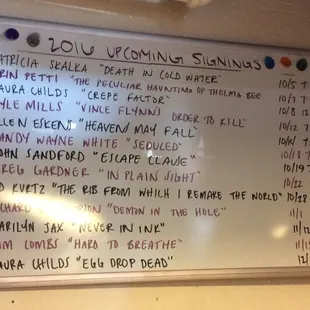 2016 UPCOMING SIGNINGS
PATRICIA SKALKA "DEATH IN COLD WATER" 10/5 7
ERIN PETTI "THE PECULIAR HAUNTING OF THELMA BEE
LAURA CHILDS "CREPE FACTOR" 10/7 7
KYLE MILLS "VINCE FLYNN'S ORDER TO KILL 10/8 12
ALLEN ESKENS "HEAVENS MAY FALL" 10/12 7
RANDY WAYNE WHITE "SEDUCED" 7
JOHN SANDFORD "ESCAPE CLAUSE" 7
GREG GARDNER "IN PLAIN SIGHT" 10/19 7
KURTZ "THE RIB FROM WHICH I REMAKE THE WORLD" 10/28
"DEMON IN THE HOLE" 11/1
MARILYN JAX "NEVER IN INK"
COMBS "HARD TO BREATHE"
LAURA CHILDS "EGG DROP DEAD" 12/